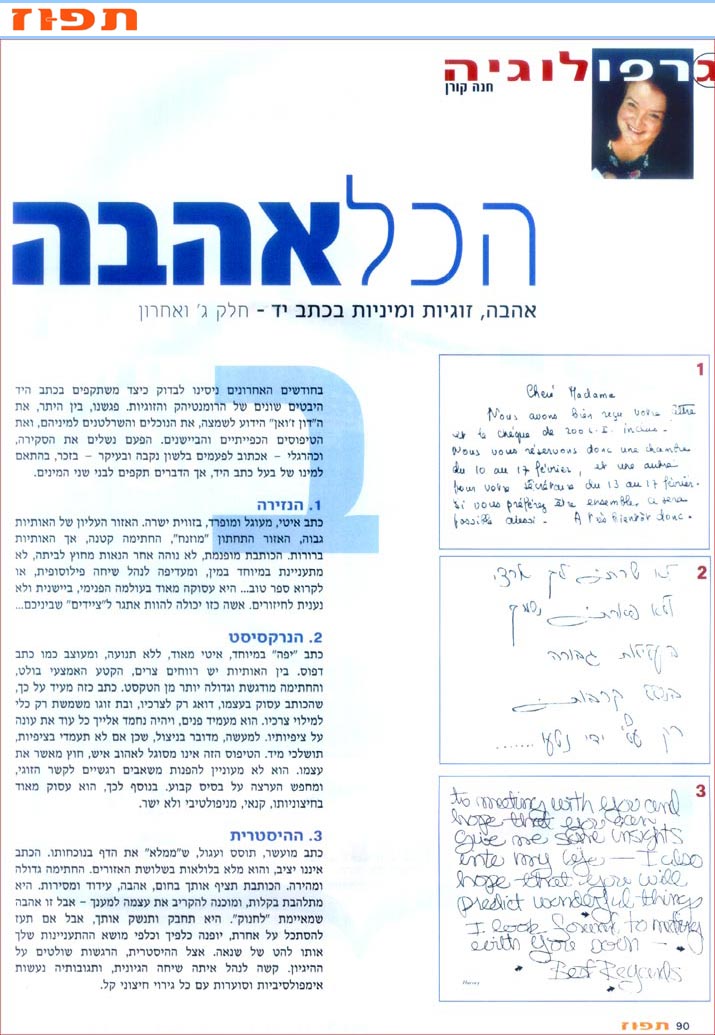 תפוז
גרפולוגיה
חנה קורן
הכלאהבה
אהבה, זוגיות ומיניות בכתב יד - חלק ג' ואחרון
בחודשים האחרונים ניסינו לבדוק כיצד משתקפים בכתב היד
היבטים שונים של הרומנטיקה והזוגיות. פגשנו, בין היתר, את
ה"דון ז'ואן" הידוע לשמצה, את הנוכלים והשרלטנים למיניהם, ואת
הטיפוסים הכפייתיים והביישנים. הפעם נשלים את הסקירה,
וכהרגלי - אכתוב לפעמים בלשון נקבה ובעיקר - בזכר, בהתאם
למינו של בעל כתב היד, אך הדברים תקפים לבני שני המינים.
1. הנזירה
כתב איטי, מעוגל ומופרד, בזווית ישרה. האזור העליון של האותיות
גבוה, האזור התחתון "מוזנח", החתימה קטנה, אך האותיות
ברורות. הכותבת מופנמת, לא נוהה אחר הנאות מחוץ לביתה, לא
מתעניינת במיוחד במין, ומעדיפה לנהל שיחה פילוסופית, או
לקרוא ספר טוב... היא עסוקה מאוד בעולמה הפנימי, ביישנית ולא
נענית לחיזורים. אשה כזו יכולה להוות אתגר ל"ציידים" שביניכם...
2. הנרקסיסט
כתב "יפה" במיוחד, איטי מאוד, ללא תנועה, ומעוצב כמו כתב
דפוס. בין האותיות יש רווחים צרים, הקטע האמצעי בולט,
והחתימה מודגשת וגדולה יותר מן הטקסט. כתב כזה מעיד על כך,
שהכותב עסוק בעצמו, דואג רק לצרכיו, ובת זוגו משמשת רק כלי
למילוי צרכיו. הוא מעמיד פנים, ויהיה נחמד אלייך כל עוד את עונה
על ציפיותיו. למעשה, מדובר בניצול, שכן אם לא תעמדי בציפיות,
תושלכי מיד. הטיפוס הזה אינו מסוגל לאהוב איש, חוץ מאשר את
עצמו. הוא לא מעוניין להפנות משאבים רגשיים לקשר הזוגי,
ומחפש הערצה על בסיס קבוע. בנוסף לכך, הוא עסוק מאוד
בחיצוניותו, קנאי, מניפולטיבי ולא ישר.
3. ההיסטרית
כתב מועשר, תוסס ועגול, ש"ממלא" את הדף בנוכחותו. הכתב
איננו יציב, והוא מלא בלולאות בשלושת האזורים. החתימה גדולה
ומהירה. הכותבת תציף אותך בחום, אהבה, עידוד ומסירות. היא
מתלהבת בקלות, ומוכנה להקריב את עצמה למענך - אבל זו אהבה
שמאיימת "לחנוק". היא תחבק ותנשק אותך, אבל אם תעז
להסתכל על אחרת, יופנה כלפיך וכלפי מושא ההתעניינות שלך
אותו להט של שנאה. אצל ההיסטרית, הרגשות שולטים על
ההיגיון. קשה לנהל איתה שיחה הגיונית, ותגובותיה נעשות
אימפולסיביות וסוערות עם כל גירוי חיצוני קל.
1
Cheré Madame
Nous avons bien reçu votre lettre
et le chéque de 200 L.I. inclus.
Nous vous réservons donc une chambre
du 10 au 17 février, et une autre
pour votre sécrétaire du 13 au 17 février.
Si vous préférez être ensemble, ce sera
possible aussi. A très bientôt donc.
2
לא שרתי לך ארצי
ולא פארתי שמך
בעלילות גבורה
בשלל קרבות
רק על ידי נטעו.......
3
to meeting with you and
hope that you can
give me some insights
into my life — I also
hope that you will
predict wonderful things
I look forward to meeting
with you soon —
Best Regards
Harvey
תפוז 90